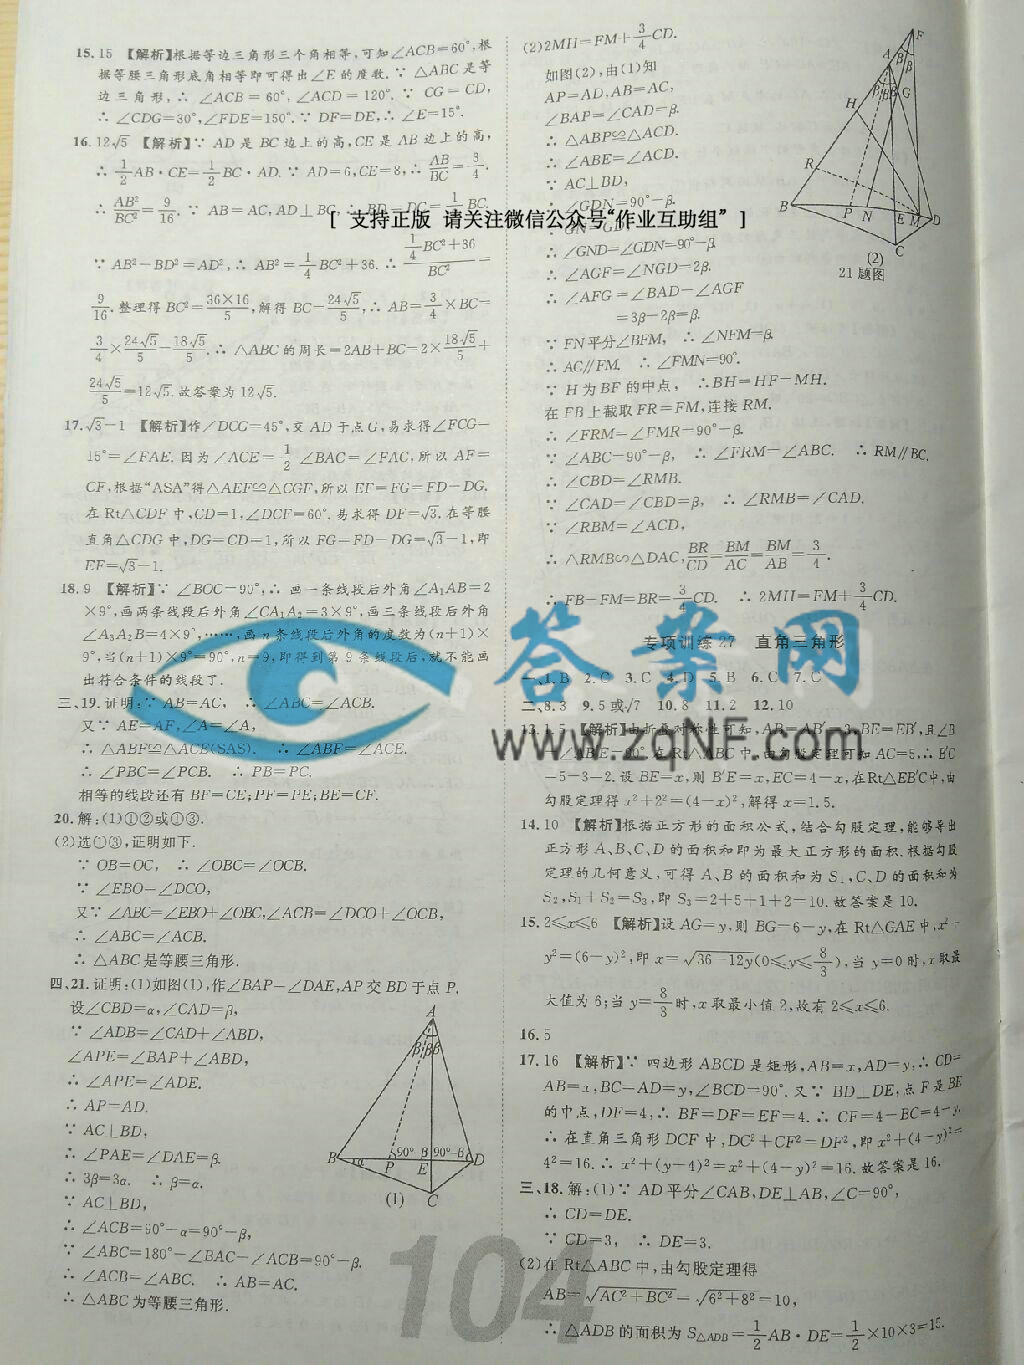 15. 15 【解析】根据等边三角形三个角相等,可知∠ACB=60°,根
据等腰三角形底角相等即可得出∠E的度数.∵ △ABC是等
边三角形,∴ ∠ACB=60°,∠ACD=120°.∵ CG=CD,
∴ ∠CDG=30°,∠FDE=150°.∵ DF=DE,∴ ∠E=15°.
16. 12√5 【解析】∵ AD是BC边上的高,CE是AB边上的高,
∴ 1/2 AB·CE=1/2 BC·AD.∵ AD=6,CE=8,∴ AB/BC=3/4.
∴ AB²/BC²=9/16.∵ AB=AC,AD⊥BC,∴ BD=DC=1/2 BC.
∵ AB²-BD²=AD²,∴ AB²=1/4 BC²+36.∴ (1/4 BC²+36)/BC²=
9/16.整理得BC²=36×16/5,解得BC=24√5/5,∴ AB=3/4×BC=
3/4×24√5/5=18√5/5.∴ △ABC的周长=2AB+BC=2×18√5/5+
24√5/5=12√5.故答案为12√5.
17. √3-1 【解析】作∠DCG=45°,交AD于点G,易求得∠FCG=
15°=∠FAE.因为∠ACE=1/2∠BAC=∠FAC,所以AF=
CF,根据“ASA”得△AEF≌△CGF,所以EF=FG=FD-DG.
在Rt△CDF中,CD=1,∠DCF=60°.易求得DF=√3.在等腰
直角△CDG中,DG=CD=1,所以FG=FD-DG=√3-1,即
EF=√3-1.
18. 9 【解析】∵ ∠BOC=90°,∴ 画一条线段后外角∠A₁AB=2
×9°,画两条线段后外角∠CA₁A₂=3×9°,画三条线段后外角
∠A₃A₂B=4×9°,……,画n条线段后外角的度数为(n+1)×
9°,当(n+1)×9°=90°,n=9,即得到第9条线段后,就不能画
出符合条件的线段了.
三、19. 证明:∵ AB=AC, ∴ ∠ABC=∠ACB.
又∵ AE=AF,∠A=∠A,
∴ △ABF≌△ACE(SAS). ∴ ∠ABF=∠ACE.
∴ ∠PBC=∠PCB. ∴ PB=PC.
相等的线段还有BF=CE;PF=PE;BE=CF.
20. 解:(1)①②或①③.
(2)选①③,证明如下.
∵ OB=OC, ∴ ∠OBC=∠OCB.
∵ ∠EBO=∠DCO,
又∵ ∠ABC=∠EBO+∠OBC,∠ACB=∠DCO+∠OCB,
∴ ∠ABC=∠ACB.
∴ △ABC是等腰三角形.
四、21. 证明:(1)如图(1),作∠BAP=∠DAE,AP交BD于点P.
设∠CBD=α,∠CAD=β,
∵ ∠ADB=∠CAD+∠ABD,
∠APE=∠BAP+∠ABD,
∴ ∠APE=∠ADE.
∴ AP=AD.
∵ AC⊥BD,
∴ ∠PAE=∠DAE=β.
∴ 3β=3α. ∴ β=α.
∵ AC⊥BD,
∴ ∠ACB=90°-α=90°-β,
∵ ∠ABC=180°-∠BAC-∠ACB=90°-β.
∴ ∠ACB=∠ABC. ∴ AB=AC.
∴ △ABC为等腰三角形.
A
β β β
90°-β 90°-β
B α P E D
C
(1)
(2)2MH=FM+3/4 CD.
如图(2),由(1)知
AP=AD,AB=AC,
∠BAP=∠CAD=β.
∴ △ABP≌△ACD.
∴ ∠ABE=∠ACD.
∵ AC⊥BD,
∴ ∠GDN=90°-β.
∵ GN=GD,
∴ ∠GND=∠GDN=90°-β.
∴ ∠AGF=∠NGD=2β.
∴ ∠AFG=∠BAD-∠AGF
=3β-2β=β.
∵ FN平分∠BFM, ∴ ∠NFM=β.
∴ AC∥FM. ∴ ∠FMN=90°.
∵ H为BF的中点, ∴ BH=HF=MH.
在FB上截取FR=FM,连接RM.
∴ ∠FRM=∠FMR=90°-β.
∵ ∠ABC=90°-β, ∴ ∠FRM=∠ABC. ∴ RM∥BC.
∴ ∠CBD=∠RMB.
∵ ∠CAD=∠CBD=β, ∴ ∠RMB=∠CAD.
∵ ∠RBM=∠ACD,
∴ △RMB∽△DAC,BR/CD=BM/AC=BM/AB=3/4.
∴ FB-FM=BR=3/4 CD. ∴ 2MH=FM+3/4 CD.
F
A
H G
R
B P N E M D
C
(2)
21题图
[ 支持正版 请关注微信公众号“作业互助组” ]
专项训练27 直角三角形
一、1. B 2. C 3. C 4. D 5. B 6. C 7. C
二、8. 3 9. 5或√7 10. 8 11. 2 12. 10
13. 1.5 【解析】由折叠对称性可知,AB=AB′=3,BE=EB′,且∠B
=∠AB′E=90°.在Rt△ABC中,由勾股定理可知AC=5,∴ B′C
=5-3=2.设BE=x,则B′E=x,EC=4-x,在Rt△EB′C中,由
勾股定理得x²+2²=(4-x)²,解得x=1.5.
14. 10 【解析】根据正方形的面积公式,结合勾股定理,能够导出
正方形A、B、C、D的面积和即为最大正方形的面积.根据勾股
定理的几何意义,可得A、B的面积和为S₁,C、D的面积和为
S₂,S₁+S₂=S₃,即S₃=2+5+1+2=10.故答案是10.
15. 2≤x≤6 【解析】设AG=y,则BG=6-y,在Rt△GAE中,x²=
y²=(6-y)²,即x=√(36-12y)(0≤y≤8/3),当y=0时,x取最
大值为6;当y=8/3时,x取最小值2,故有2≤x≤6.
16. 5
17. 16 【解析】∵ 四边形ABCD是矩形,AB=x,AD=y,∴ CD=
AB=x,BC=AD=y,∠BCD=90°.又∵ BD⊥DE,点F是BE
的中点,DF=4,∴ BF=DF=EF=4.∴ CF=4-BC=4-y.
∴ 在直角三角形DCF中,DC²+CF²=DF²,即x²+(4-y)²=
4²=16.∴ x²+(y-4)²=x²+(4-y)²=16.故答案是16.
三、18. 解:(1)∵ AD平分∠CAB,DE⊥AB,∠C=90°,
∴ CD=DE.
∵ CD=3, ∴ DE=3.
(2)在Rt△ABC中,由勾股定理得
AB=√(AC²+BC²)=√(6²+8²)=10,
∴ △ADB的面积为S△ADB=1/2 AB·DE=1/2×10×3=15.
答案网
www.zqNF.com
104